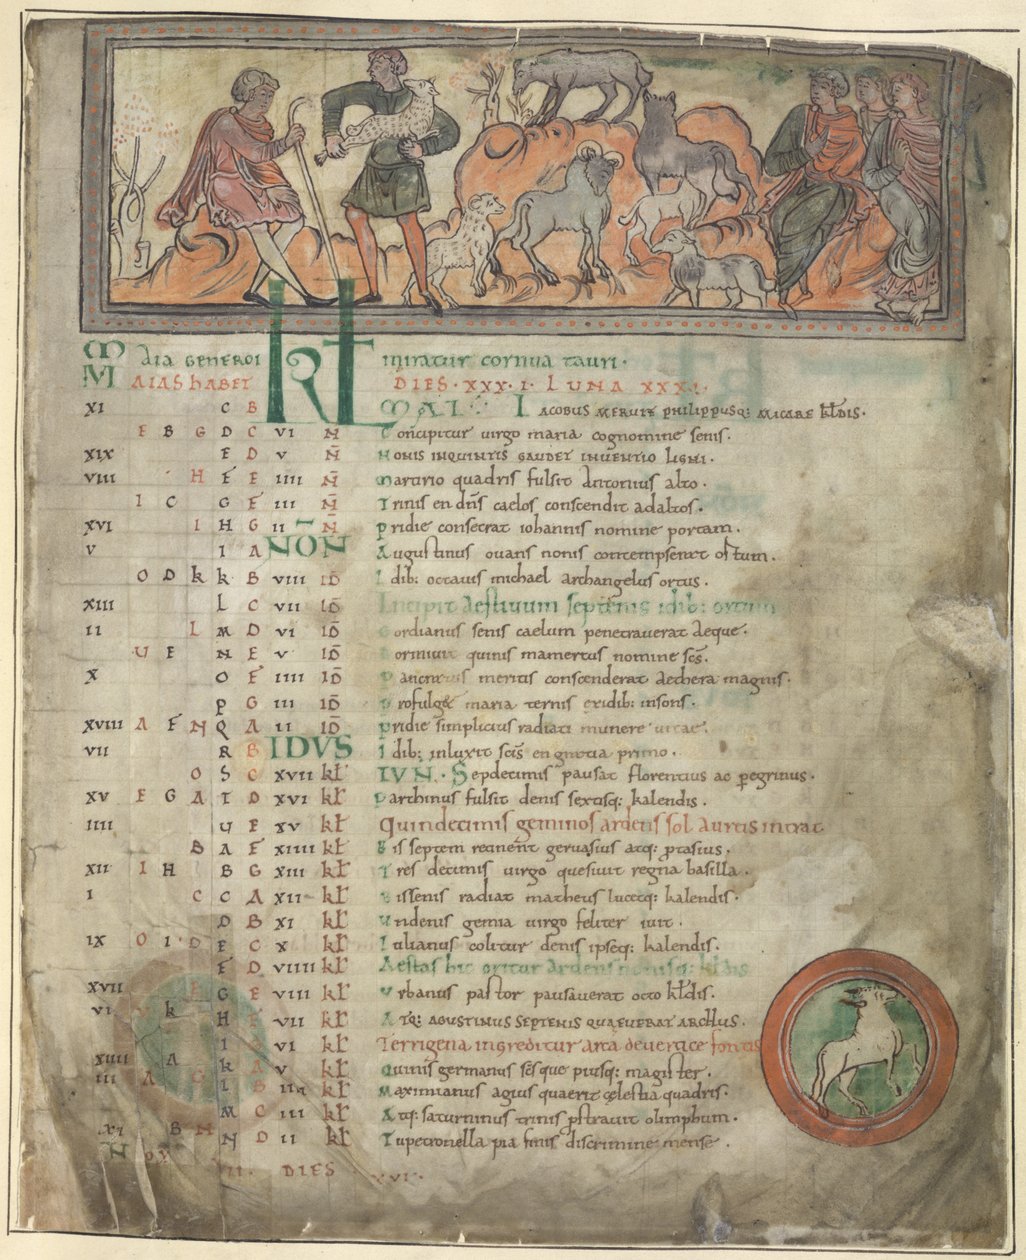 Maia generoi KL miratur cornua tauri.
MAIAS HABET DIES. XXX.I. LUNA XXX.
XI C B MAI. Iacobus meruit philippusq: micare kłdis.
F B G D C VI N̄ Concipitur virgo maria cognomine senis.
XIX E D V N̄ Nonis inquintis gaudet inventio ligni.
VIII H F E IIII N̄ Martirio quadris fulsit Antonius alto.
I C G F III N̄ Trinis en dn̄s caelos conscendit ad altos.
XVI I H G II N̄ Pridie consecrat iohannis nomine portam.
V I A NŌN Augustinus ovans nonis contempserat ostum.
O D k k B VIII ID̄ Idib: octavus michael archangelus ortus.
XIII L C VII ID̄ Incipit aestivum septenis idib: ortum
II L M D VI ID̄ Gordianus senis caelum penetraverat aeque.
U E N E V ID̄ Dormivit quinis mamertus nomine sc̄s.
X O F IIII ID̄ Pancratis meritus conscenderat aethera magnis.
P G III ID̄ Profulg& maria ternis exidib: insons.
XVIII A F N Q A II ID̄ Pridie simplicius radiati munere vitae.
VII R B IDVS Idib: inluxit sc̄is en gnetia primo.
O S C XVII kł IVN. Sepdecimis pausat florentius ac peregrinus.
XV F G A T D XVI kł Parthinus fulsit denis sextisq: kalendis.
IIII U E XV kł Quindecimis geminos ardens sol aureus intrat
B A F XIIII kł Bis septem retinent gervasius atq: ꝓtasius.
XII I H B G XIII kł Tres decimis virgo quesivit regna basilla.
I C C A XII kł Bissenis radiat matheus luceq: kalendis.
D B XI kł Undenis gemia virgo feliter ivit.
IX O I D E C X kł Iulianus colitur denis ipseq: kalendis.
F D VIIII kł Aestas hic oritur ardens nonisq: kłdis
XVII E G E VIII kł Urbanus pastor pausaverat octo kłdis.
VI k H F VII kł Atq: Agustinus septenis quaeverat archus.
I G VI kł Terrigena ingreditur arca de vertice fontis
XIIII A k A V kł Quinis germanus sēs que piusq: magister.
III A G L B IIII kł Maximianus agius quaerit celestia quadris.
M C III kł Atq: saturninus trinis pstravit olimphum.
XI B N N D II kł Tu petronella pia finis discrimine mense.
DIES XVI.